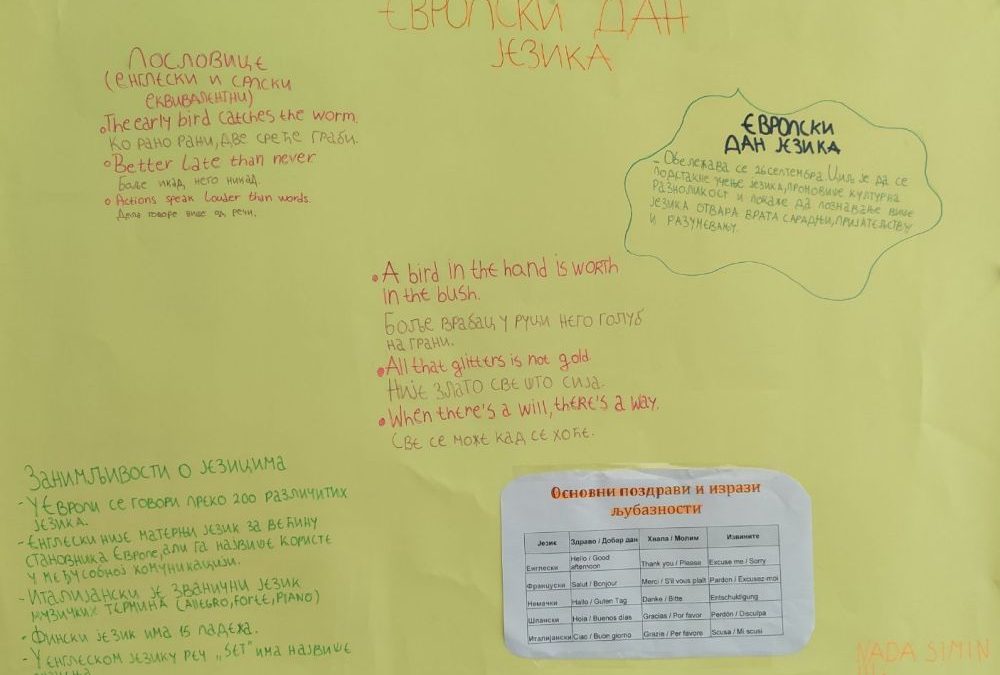 ЕВРОПСКИ ДАН
ЈЕЗИКА
Пословице
(енглески и српски
еквивалентни)
The early bird catches the worm.
Ко рано рани, две среће граби.
Better late than never
Боље икад него никад.
Actions speak louder than words.
Дела говоре више од речи.
ЕВРОПСКИ
ДАН ЈЕЗИКА
- Обележава се 26 септембра. Циљ је да се
подстакне учење језика, промовише културна
разноликост и покаже да познавање више
језика отвара врата сарадњи, пријатељству
и разумевању.
A bird in the hand is worth
in the bush.
Боље врабац у руци него голуб
на грани.
All that glitters is not gold
Није злато све што сија.
When there's a will, there's a way.
Све се може кад се хоће.
Занимљивости о језицима
- У Европи се говори преко 200 различитих
језика.
- Енглески није матерњи језик за већину
становника Европе, али га највише користе
у међусобној комуникацији.
- Италијански је званични језик
музичких термина (allegro, forte, piano)
- Фински језик има 15 падежа.
- У енглеском језику реч „SET" има највише
Основни поздрави и изрази
љубазности
Језик Здраво / Добар дан Хвала / Молим Извините
Енглески Hello / Good afternoon Thank you / Please Excuse me / Sorry
Француски Salut / Bonjour Merci / S'il vous plaît Pardon / Excusez-moi
Немачки Hallo / Guten Tag Danke / Bitte Entschuldigung
Шпански Hola / Buenos días Gracias / Por favor Perdón / Disculpa
Италијански Ciao / Buon giorno Grazie / Per favore Scusa / Mi scusi
NADA SIMIN